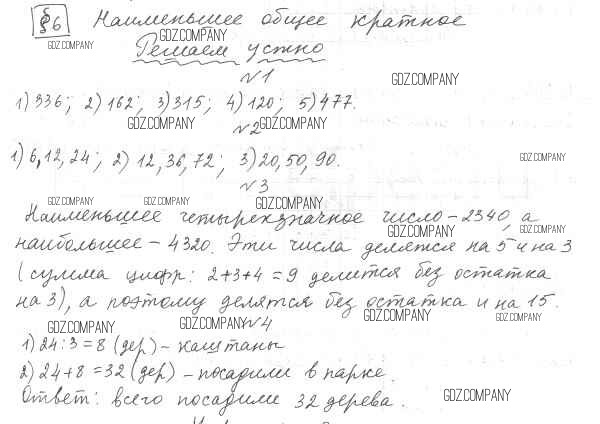 §6 Наименьшее общее кратное
GDZ.COMPANY GDZ.COMPANY
Решаем устно
№1 GDZ.COMPANY
1) 336; 2) 162; 3) 315; 4) 120; 5) 477.
GDZ.COMPANY №2 GDZ.COMPANY
1) 6, 12, 24; 2) 12, 36, 72; 3) 20, 50, 90. GDZ.COMPANY
№3
GDZ.COMPANY GDZ.COMPANY GDZ.COMPANY
Наименьшее четырехзначное число - 2340, а
GDZ.COMPANY GDZ.COMPANY
наибольшее - 4320. Эти числа делятся на 5 и на 3
(сумма цифр: 2+3+4=9 делится без остатка
на 3), а поэтому делятся без остатка и на 15.
GDZ.COMPANY GDZ.COMPANY №4 GDZ.COMPANY GDZ.COMPANY
1) 24:3=8 (дер) - каштаны
2) 24+8=32 (дер) - посадили в парке.
Ответ: всего посадили 32 дерева. GDZ.COMPANY